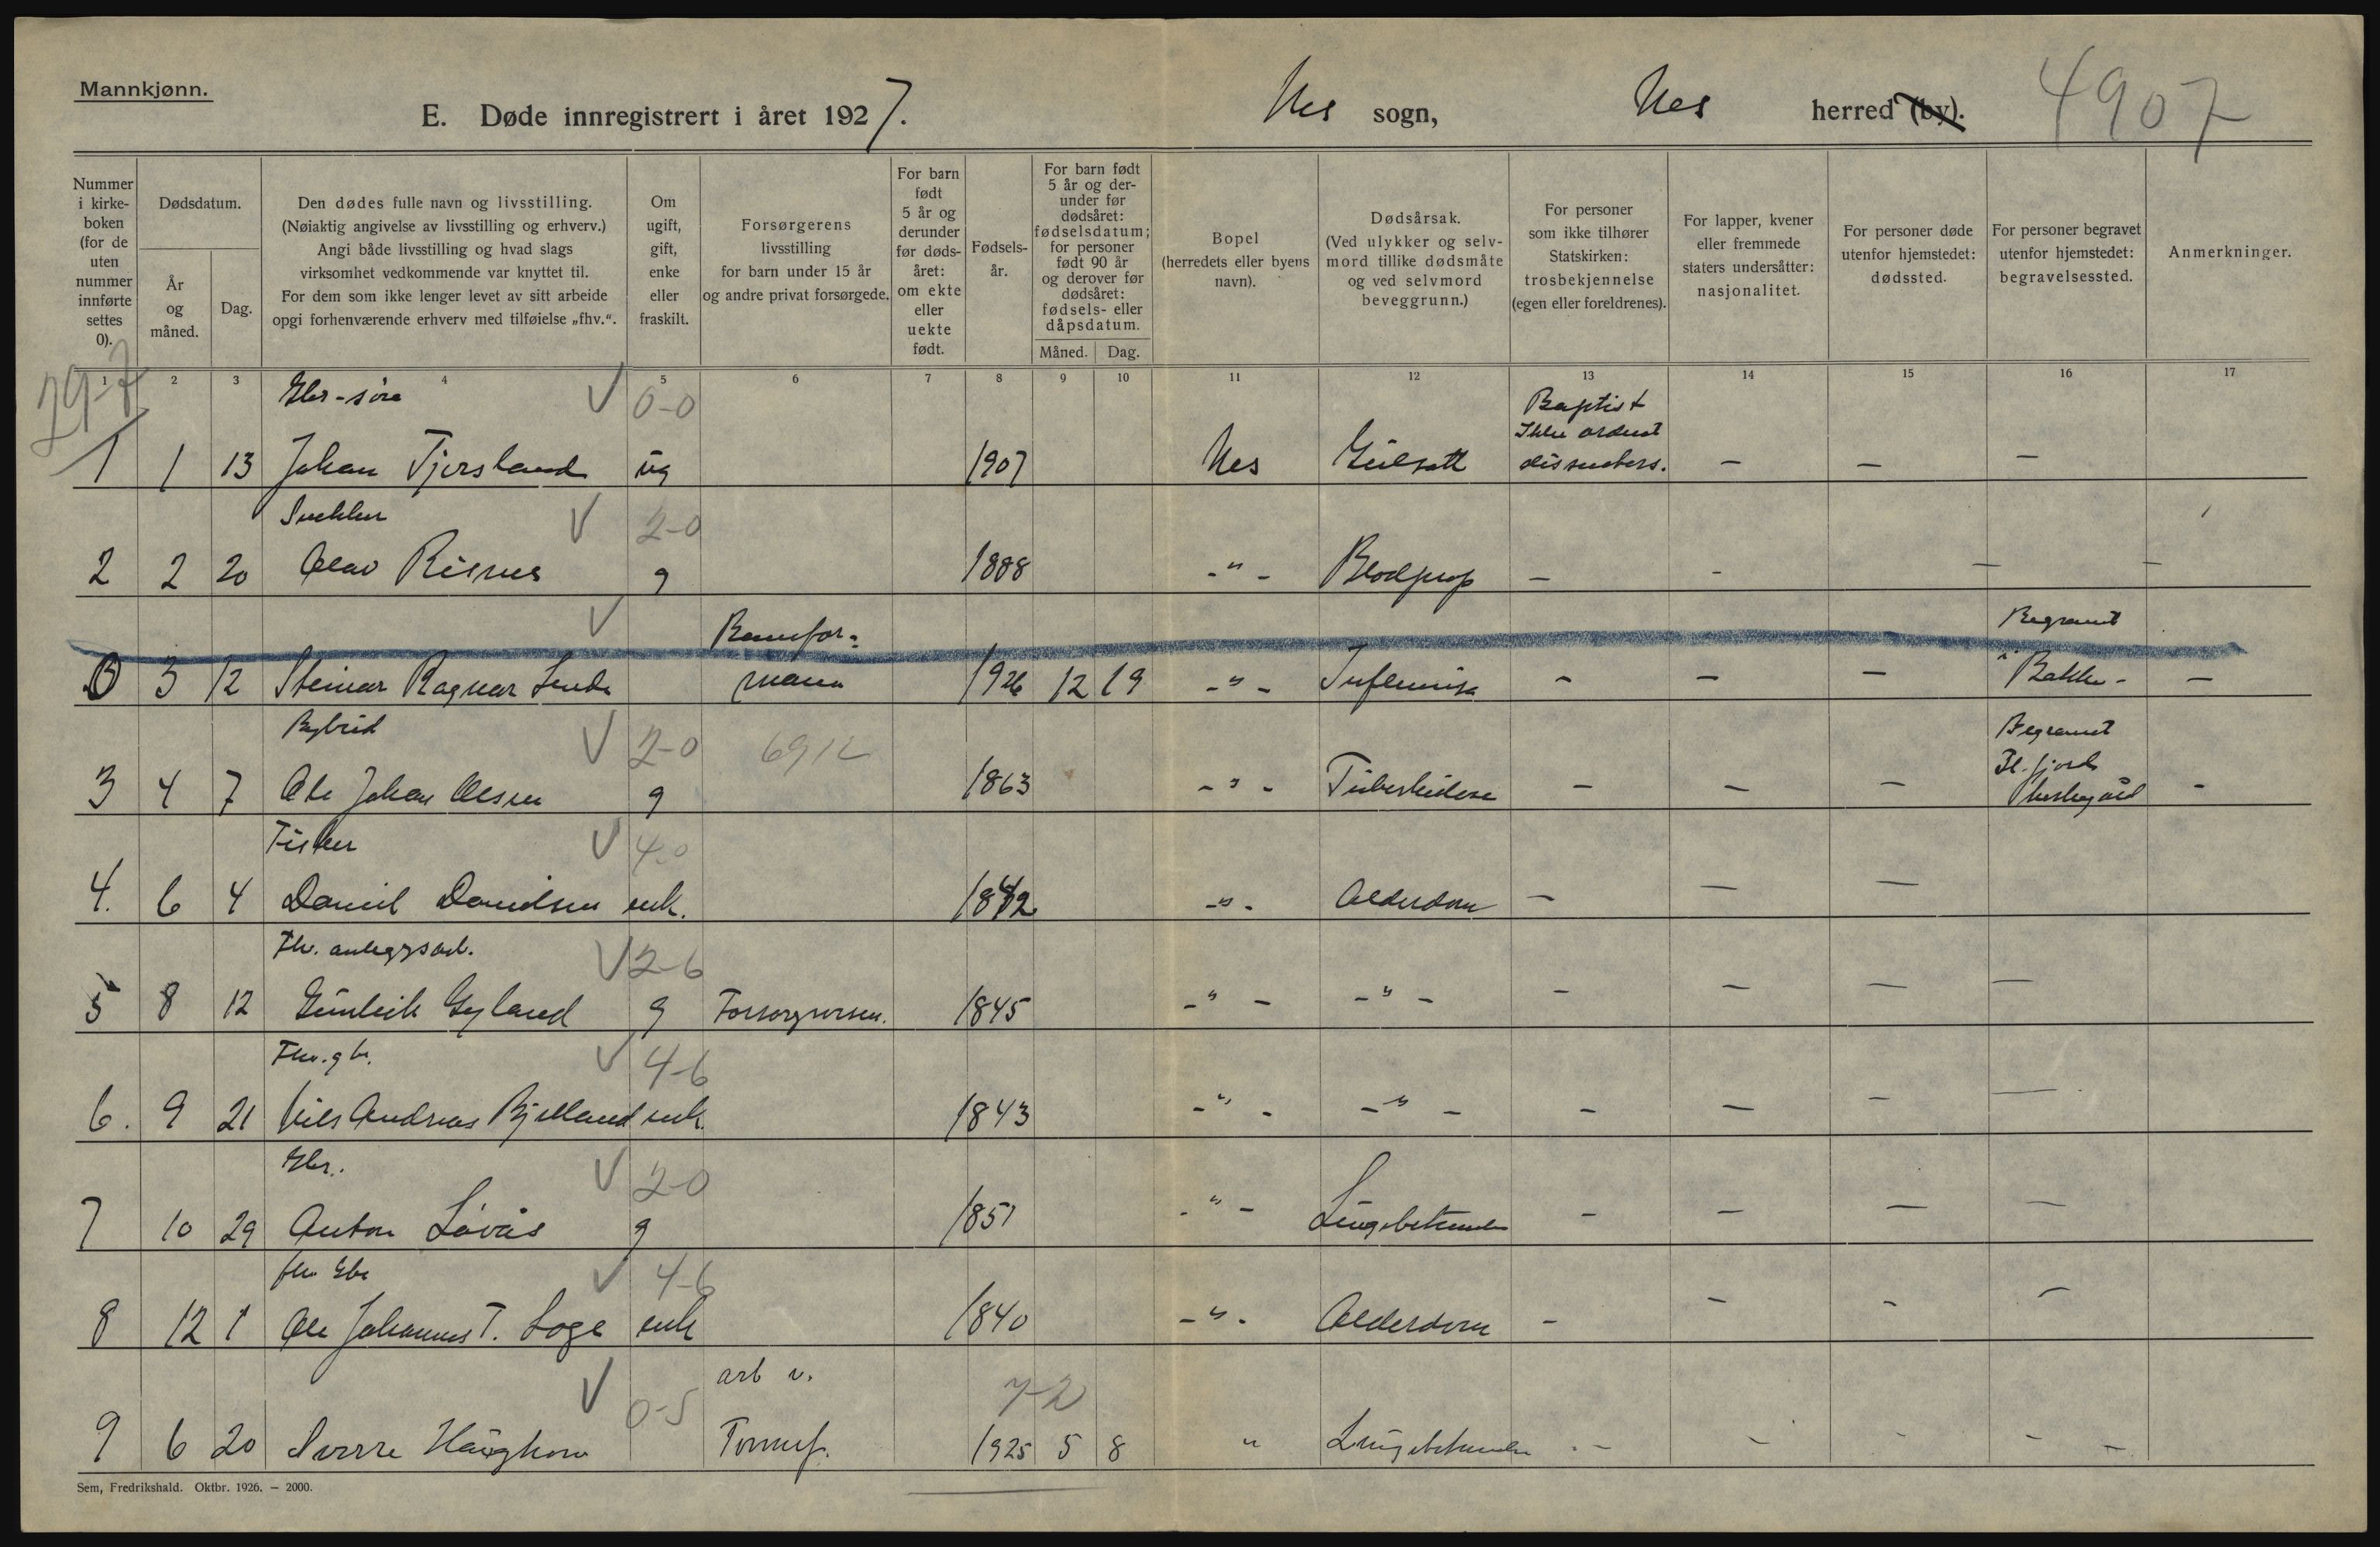 Mannkjønn.
E. Døde innregistrert i året 1927.
Nes sogn,
Nes herred (by).
4907
Nummer i kirke-boken (for de uten nummer innførte settes 0).
Dødsdatum.
År og måned.
Dag.
Den dødes fulle navn og livsstilling.
(Nøiaktig angivelse av livsstilling og erhverv.)
Angi både livsstilling og hvad slags
virksomhet vedkommende var knyttet til.
For dem som ikke lenger levet av sitt arbeide
opgi forhenværende erhverv med tilføielse „fhv.“.
Om ugift, gift, enke eller fraskilt.
Forsørgerens
livsstilling
for barn under 15 år
og andre privat forsørgede.
For barn født 5 år og derunder før døds-året: om ekte eller uekte født.
Fødsels-år.
For barn født 5 år og der-under før dødsåret: fødselsdatum; for personer født 90 år og derover før dødsåret: fødsels- eller dåpsdatum.
Måned. Dag.
Bopel
(herredets eller byens
navn).
Dødsårsak.
(Ved ulykker og selv-
mord tillike dødsmåte
og ved selvmord
beveggrunn.)
For personer
som ikke tilhører
Statskirken:
trosbekjennelse
(egen eller foreldrenes).
For lapper, kvener
eller fremmede
staters undersåtter:
nasjonalitet.
For personer døde
utenfor hjemstedet:
dødssted.
For personer begravet
utenfor hjemstedet:
begravelsessted.
Anmerkninger.
1 2 3 4 5 6 7 8 9 10 11 12 13 14 15 16 17
29-7
Gbr-søn V 0-0 Baptist
Ikke ordnet
1 1 13 Johan Tjersland ug 1907 Nes Gulsott dissenters. - - -
Snekker V 2-0
2 2 20 Olav Risnes g 1888 -"- Blodprop - - - -
V Banefor- Begravet
0 3 12 Steinar Ragnar Lende mann 1926 12 19 -"- Influensa - - - i Bakke - -
V 2-0 6912 Begravet
Fl. fjord
3 4 7 Ole Johan Olsen g 1863 -"- Tuberkulose - - - kirkegård -
Fisker V 4-0
4. 6 4 Daniel Danielsen enk. 1842 -"- Alderdom - - -
Fhv. anleggsarb. V 2-6
5 8 12 Gunleik Gyland g Forsorgsvesen. 1845 -"- -"- - - - -
Fhv. gbr. V 4-6
6. 9 21 Nils Andreas Bjelland enk. 1843 -"- -"- - - - -
Gbr. V 2-0
7 10 29 Anton Løvås g 1851 -"- Lungebetennelse - - - -
fhv Gbr V 4-6
8 12 1 Ole Johannes T. Loge enk 1840 -"- Alderdom - - - -
V 0-5 arb v. 7-2
9 6 20 Sverre Haughom 1925 5 8 " Lungebetennelse - - - - -
Sem, Fredrikshald. Oktbr. 1926. — 2000.